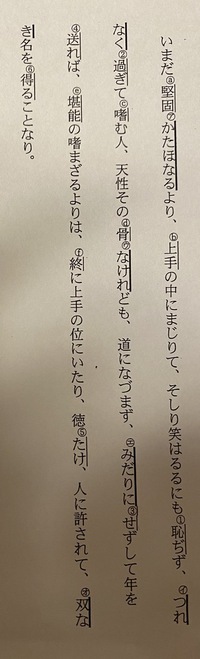 いまだⓐ堅固㋐かたほなるより、ⓑ上手の中にまじりて、そしり笑はるるにも①恥ぢず、㋑つれ
なく②過ぎてⓒ嗜む人、天性そのⓓ骨㋒なけれども、道になづまず、㋓みだりに③せずして年を
④送れば、ⓔ堪能の嗜まざるよりは、ⓕ終に上手の位にいたり、徳⑤たけ、人に許されて、㋔双な
き名を⑥得ることなり。